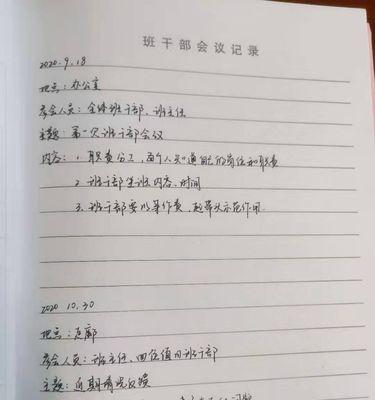 班干部会议记录
2020.9.18
地点：办公室
参会人员：全体班干部、班主任
主题：第一次班干部会议
内容：1.职责分工，每个人知道自己的岗位和职责
2.班干部坐班内容、时间
3.班干部要以身作责，起带头示范作用
2020 10.30
地点：走廊
参会人员：班主任、四位值日班干部
主题：近期情况反馈